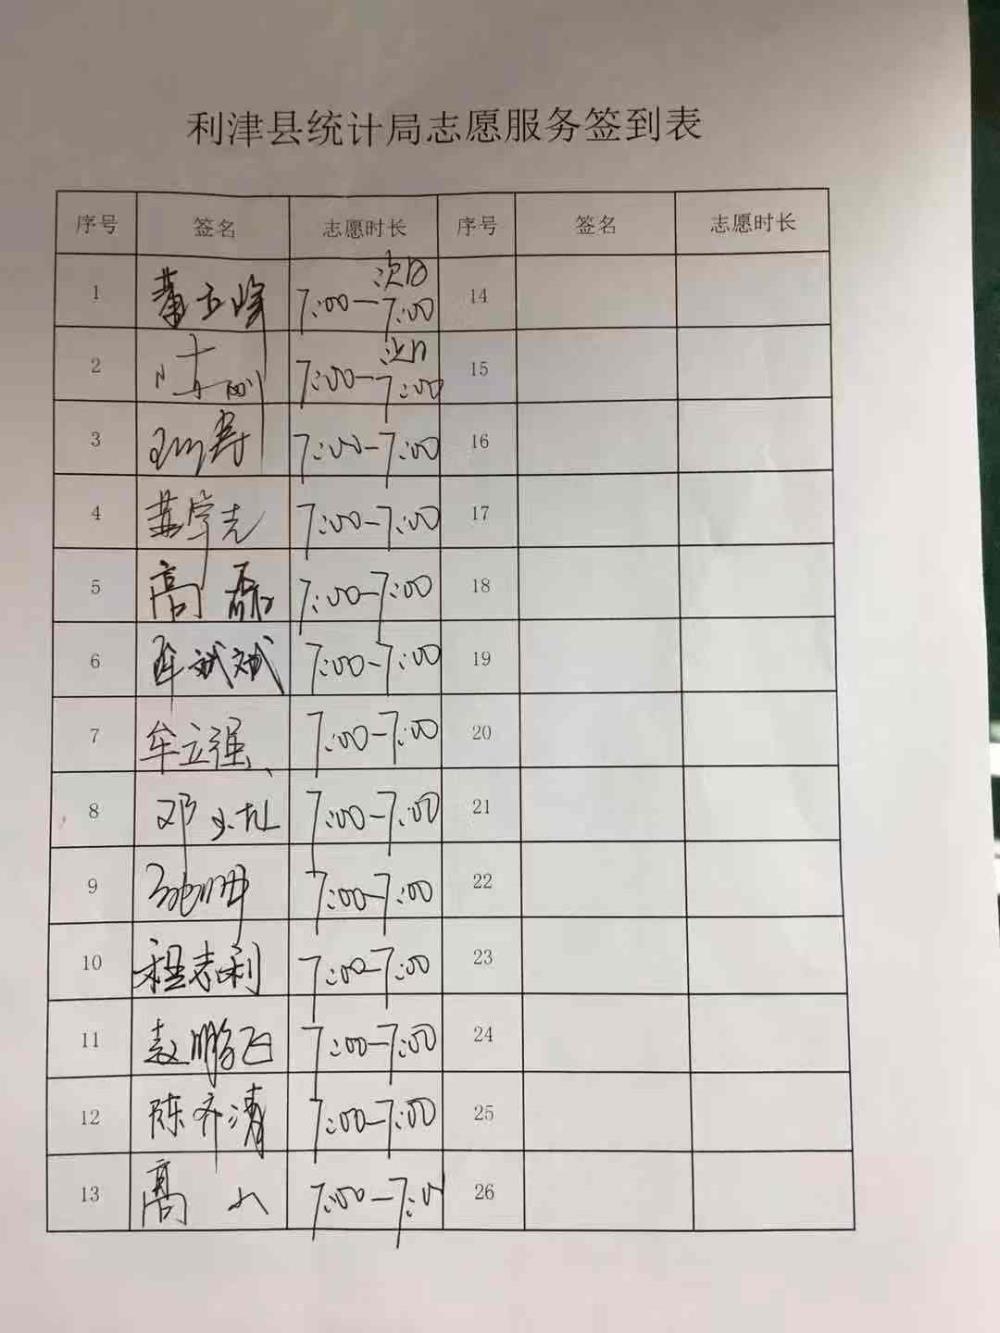 利津县统计局志愿服务签到表
序号 签名 志愿时长 序号 签名 志愿时长
1 次日 7:00—7:00 14
2 次日 7:00—7:00 15
3 7:00-7:00 16
4 7:00-7:00 17
5 高磊 7:00-7:00 18
6 牟斌斌 7:00-7:00 19
7 牟立强 7:00-7:00 20
8 邓 7:00-7:00 21
9 7:00-7:00 22
10 程志利 7:00-7:00 23
11 赵鹏飞 7:00-7:00 24
12 陈齐清 7:00-7:00 25
13 高 7:00-7:00 26